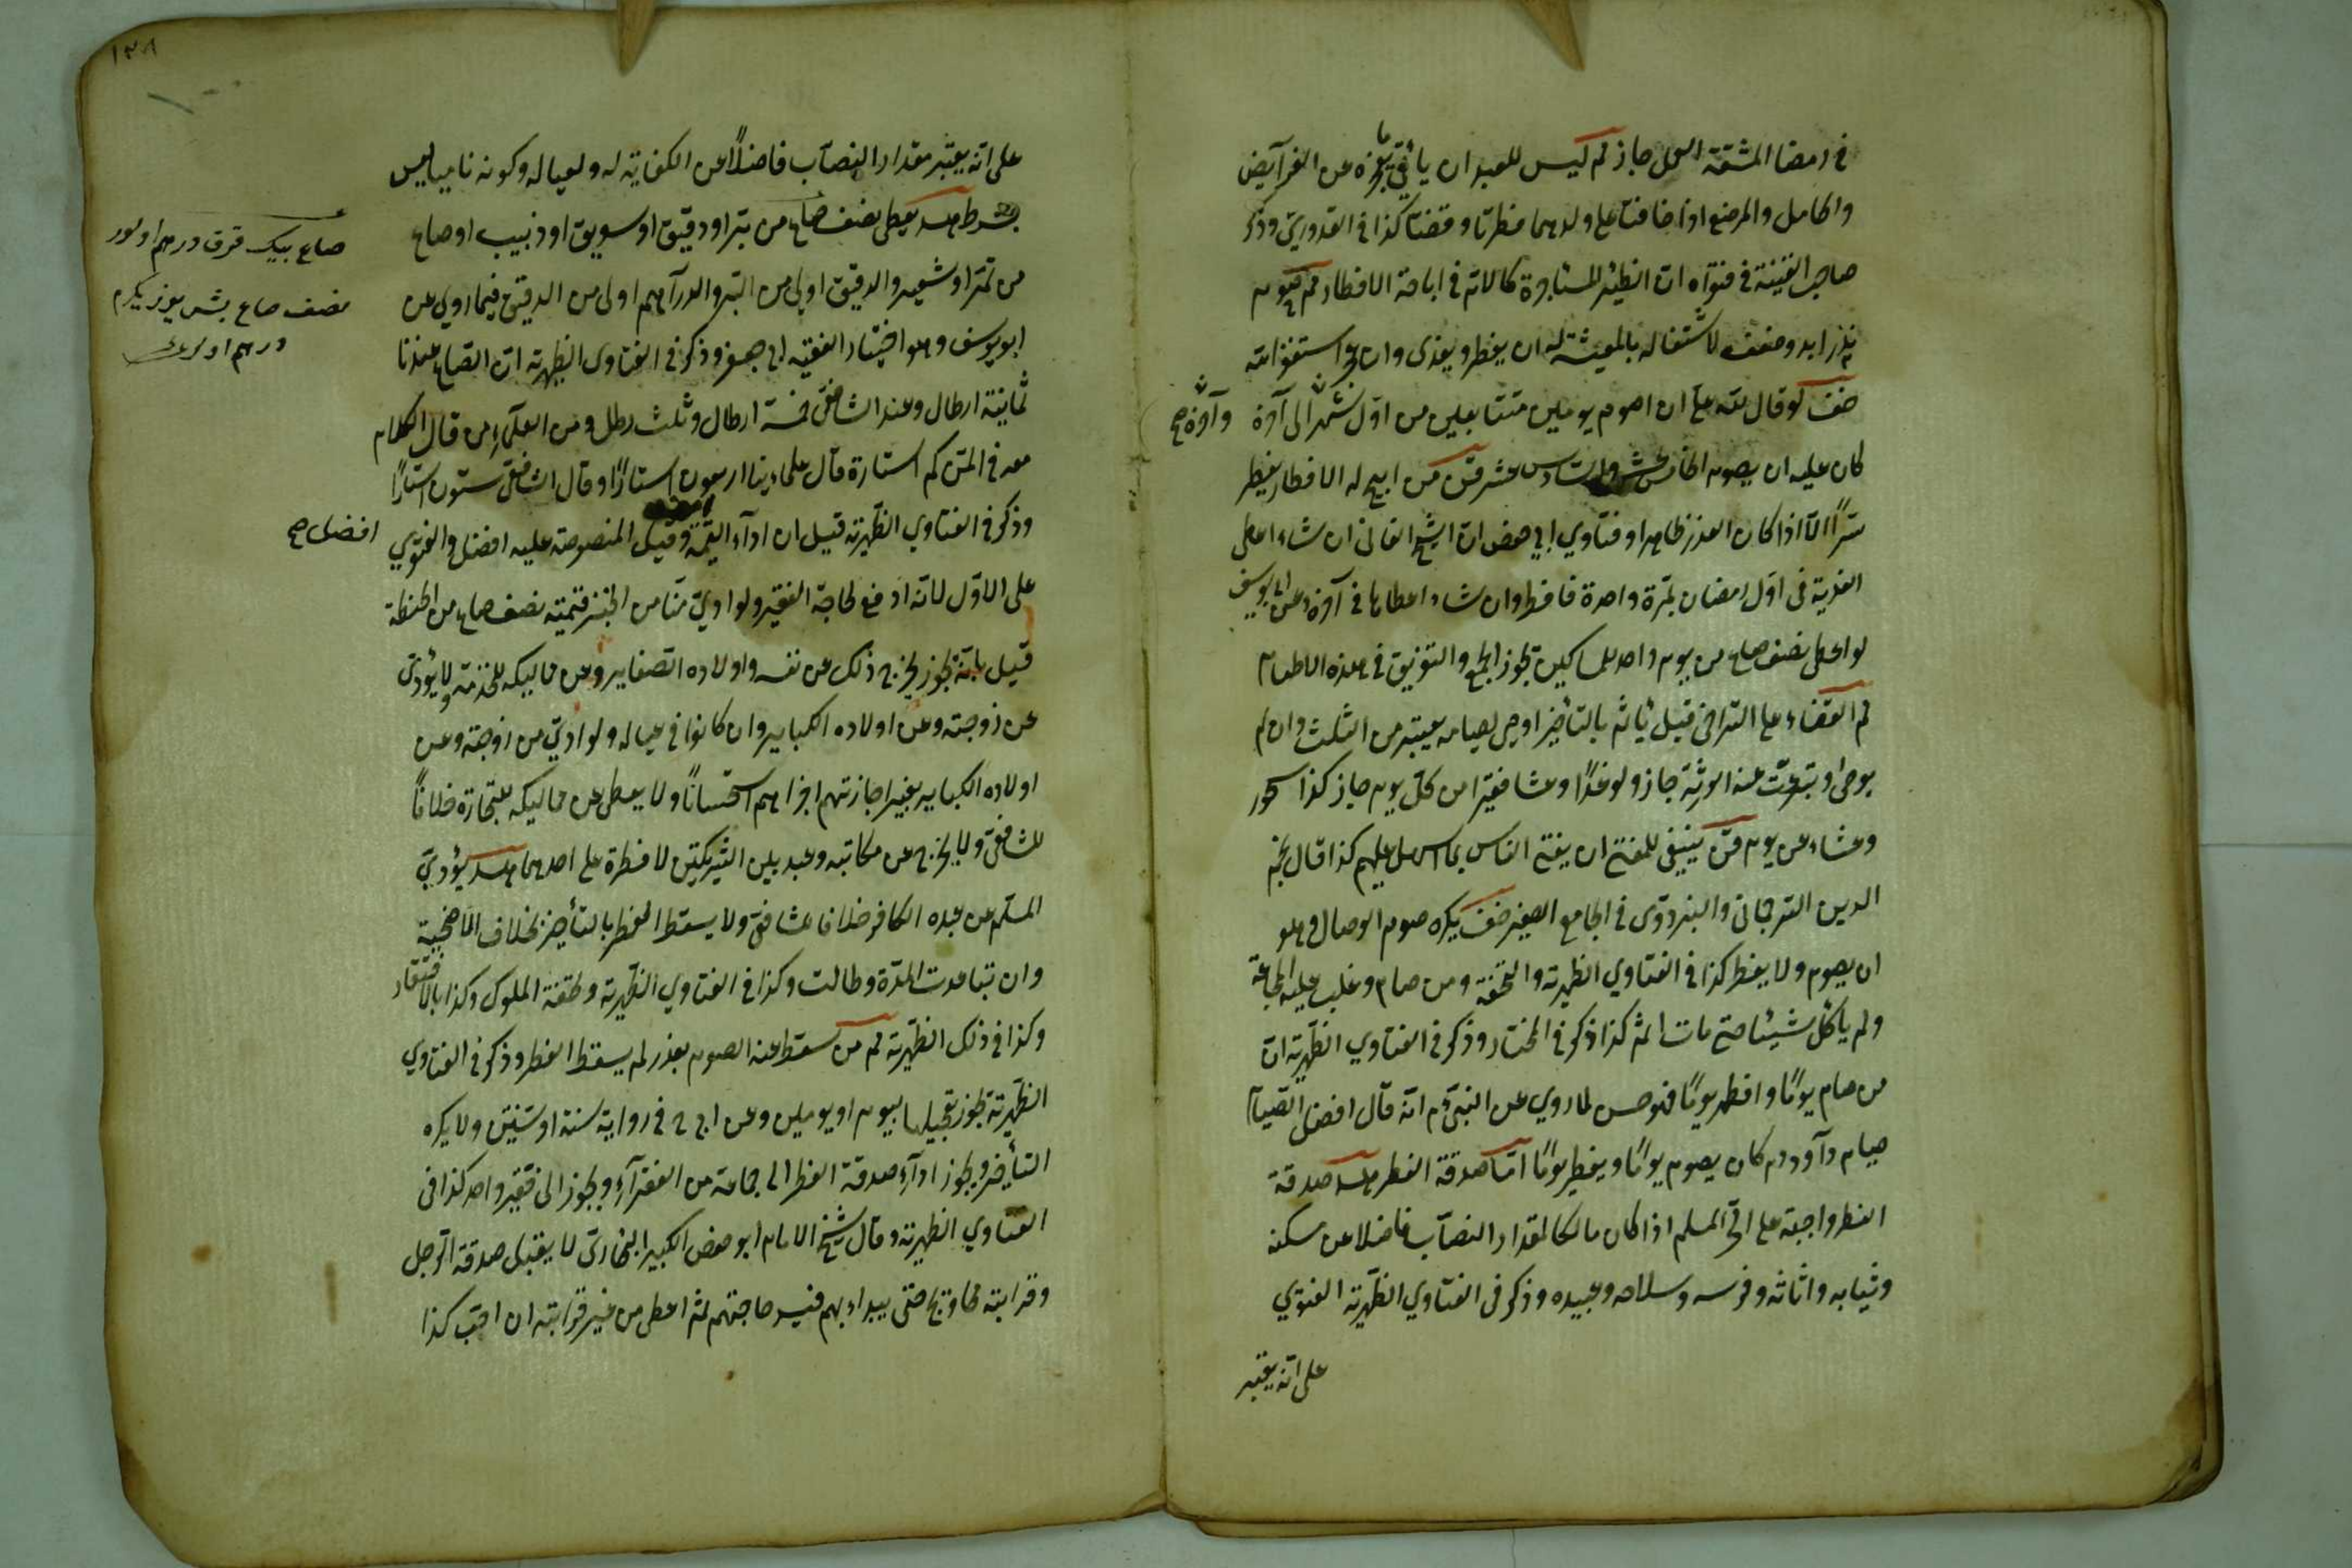 في رمضان المشقة العمل جاز ثم ليس للعبد ان يأتي ما يعجزه عن الفرآيض
والحامل والمرضع اذا خافتا على ولدهما فطرتا وقضتا كذا في القدوري وذكر
صاحب القنية في فتواه ان الظئر المستأجرة كالام في اباحة الافطار ثم صوم
نذر ابد وضعف لاشتغاله بالمعيشة له ان يفطر ويفدى وان استغفر الله
ضف لو قال لله على ان اصوم يومين متتابعين من اول شهر الى آخره وآخره صح
كان عليه ان يصوم الخامس عشر والسادس عشر من ابيح له الافطار يفطر
سرًا الا اذا كان العذر ظاهرا وفتاوي ابي حفص ان الشيخ الفاني ان شاء اعطى
الفدية في اول رمضان بمرة واحدة فافطر وان شاء اعطاها في آخره وعن ابي يوسف
لو اعطى نصف صاع من يوم واحد لمساكين يجوز الجمع والتفريق في هذه الاطعام
ثم القضاء على التراخي قيل يأثم بالتأخير اوصى لصيامه يعتبر من الثلث وان لم
يوص او تبرعت عنه الورثة جاز ولو غدا وعشا فقيرا من كل يوم جاز كذا سحور
وعشاء عن يوم ينبغي للمفتي ان يفتي الناس بما اسهل عليهم كذا قال نجم
الدين الترجماني والبزدوى في الجامع الصغير ضف يكره صوم الوصال وهو
ان يصوم ولا يفطر كذا في الفتاوي الظهيرية والتحفة ومن صام وغلب عليه المجاعة
ولم يأكل شيئا حتى مات اثم كذا ذكر في المختار وذكر في الفتاوي الظهيرية ان
من صام يومًا وافطر يومًا فهو حسن لما روي عن النبي م انه قال افضل الصيام
صيام داود م كان يصوم يومًا ويفطر يومًا امّا صدقة الفطر صدقة
الفطر واجبة على الحر المسلم اذا كان مالكا لمقدار النصاب فاضلا عن مسكنه
وثيابه واثاثه وفرسه وسلاحه وعبيده وذكر في الفتاوي الظهيرية الفتوي
على انه يعتبر
١٣٨
على انه يعتبر مقدار النصاب فاضلاً عن الكفاية له ولعياله وكونه ناميا ليس
بشرط يعطى نصف صاع من بر او دقيق او سويق او زبيب او صاع
من تمر او شعير والدقيق اولى من البر والدرآهم اولى من الدقيق فيما روي عن
ابو يوسف وهو اختيار الفقيه ابي جعفر وذكر في الفتاوى الظهيرية ان الصاع عندنا
ثمانية ارطال وعند الشافعي خمسة ارطال وثلث رطل ومن العلمآء من قال الكلام
معه في المن كم استارة قال علماءينا اربعون استارًا وقال الشافعي ستون استارًا
وذكر في الفتاوي الظهيرية قيل ان ادآء القيمة وقيل المنصوصة عليه افضل والفتوي
على الاول لانه ادفع لحاجة الفقير ولو ادي منّا من الخبز قيمته نصف صاع من الحنطة
قيل بانه يجوز يخرج ذلك عن نفسه واولاده الصغاير وعن مماليكه للخدمة ولا يؤدى
عن زوجته وعن اولاده الكبابير وان كانوا في عياله ولو ادي من زوجته وعن
اولاده الكبابير بغير اجازتهم اجزاهم استحسانًا ولا يعطى عن مماليكه للتجارة خلافًا
للشافعي ولا يخرج عن مكاتبه وعبد بين الشريكين لا فطرة على احدهما يؤدي
المسلم عن عبده الكافر خلافا للشافعي ولا يسقط الفطر بالتأخير بخلاف الاضحية
وان تباعدت المدة وطالت وكذا في الفتاوي الظهيرية ونفقة المملوك وكذا بالافتقار
وكذا في ذلك الظهيرية ثم من سقط عنه الصوم بعذر لم يسقط الفطر وذكر في الفتاوي
الظهيرية يجوز تعجيلها ليوم او يومين وعن ابي ح في رواية سنة او سنتين ولا يكره
التأخير ويجوز ادآء صدقة الفطر الى جماعة من الفقرآء ويجوز الى فقير واحد كذا في
الفتاوي الظهيرية وقال شيخ الامام ابو حفص الكبير البخاري لا يقبل صدقة الرجل
وقرابته محاويج حتى يبداء بهم فيسد حاجتهم ثم اعطى من غير قرابته ان احب كذا
صاع بيك قرق درهم اولور
نصف صاع بش يوز يكرم
درهم اولور
افضل صح